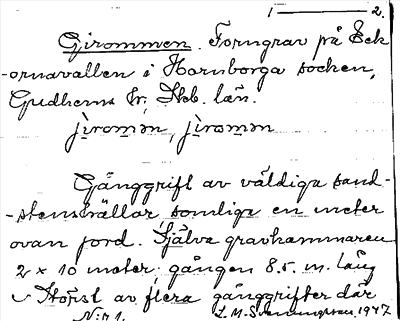 1 ——— 2.
Girommen. Forngrav på Ek-
-ornavallen i Hornborga socken,
Gudhems hr, Skb. län.
jiromən, jiromm
Gånggrift av väldiga sand-
-stenshällar, somliga en meter
ovan jord. Själva gravkammaren
2 x 10 meter; gången 8.5. m. lång
Störst av flera gånggrifter där
N:r 1. 1947